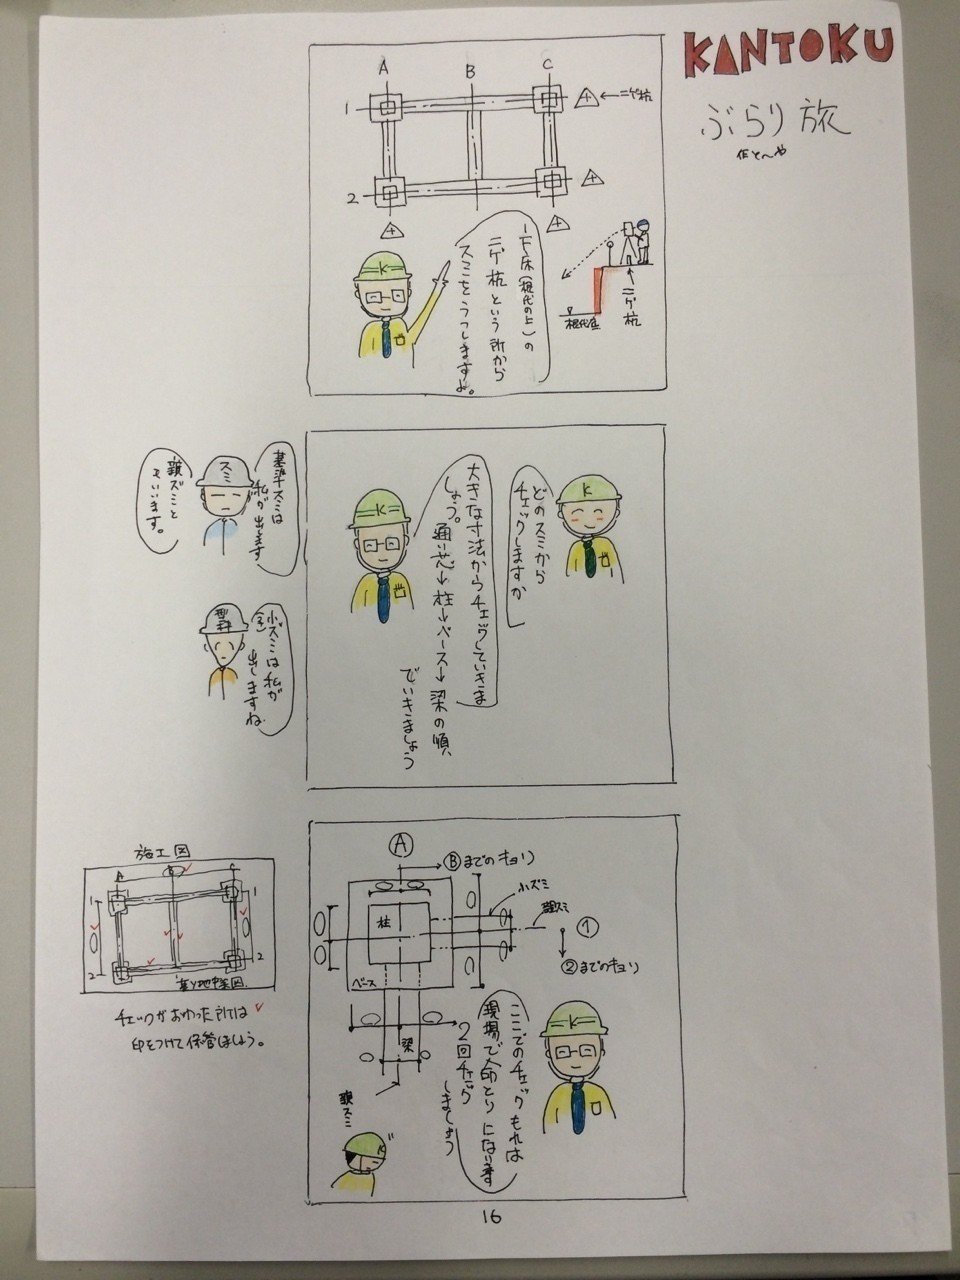 KANTOKU
ぶらり旅
作と〜や
A
B
C
1
2
ニゲ杭
K
下床(根代の上)の
ニゲ杭という所から
スミをうつしますよ。
ニゲ杭
根代底
K
どのスミから
チェックしますか
K
大きな寸法からチェックしていきま
しょう。通り芯→柱→ベース→梁の順、
でいきましょう
スミ
基準スミは
私が出します
親ズミと
いいます。
型枠
小ズミは私が
出しますね
施工図
A
B
C
1
2
基り地中梁図
チェックがおわった所は✓
印をつけて保管しましょう。
A
Bまでのキョリ
小ズミ
親スミ
1
2までのキョリ
柱
ベース
梁
親スミ
K
ここでのチェックもれは
現場で命とりになります
2回チェック
しましょう
K
16